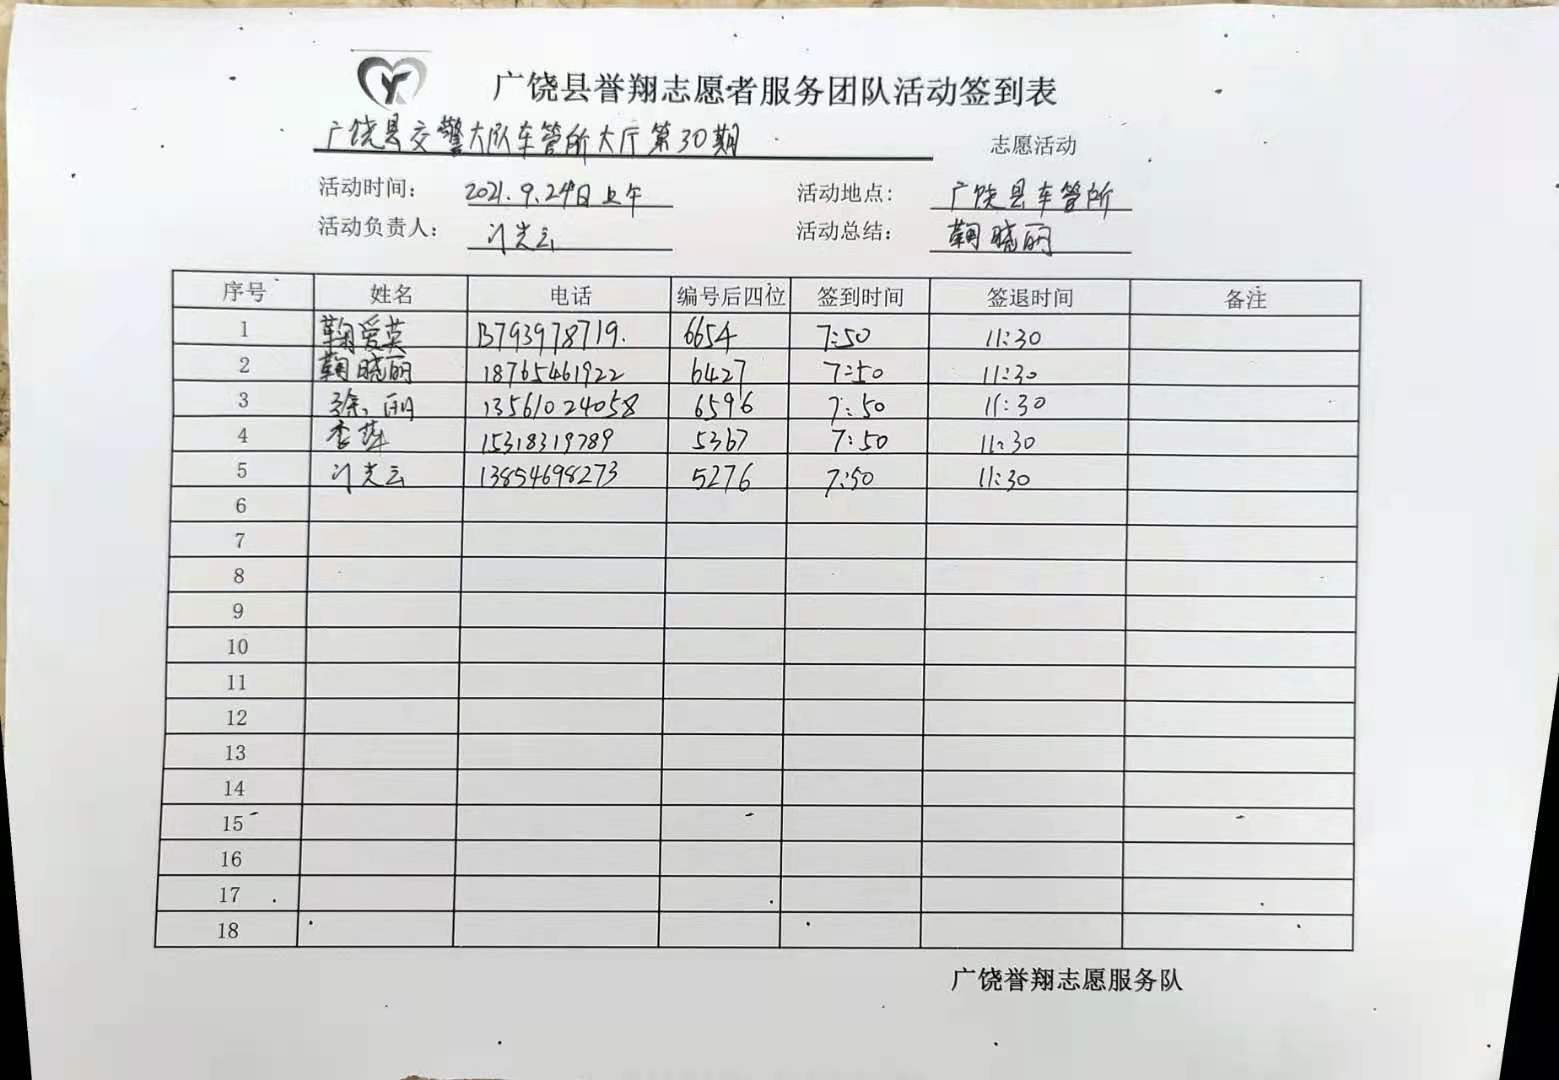 广饶县誉翔志愿者服务团队活动签到表
广饶县交警大队车管所大厅第30期 志愿活动
活动时间： 2021.9.24日上午 活动地点： 广饶县车管所
活动负责人： 光云 活动总结： 鞠晓丽
序号 姓名 电话 编号后四位 签到时间 签退时间 备注
1 鞠爱英 13793978719. 6654 7:50 11:30
2 鞠晓丽 18765461922 6427 7:50 11:30
3 徐丽 13561024058 6596 7:50 11:30
4 李萍 15318319789 5367 7:50 11:30
5 光云 13854698273 5276 7:50 11:30
6
7
8
9
10
11
12
13
14
15
16
17
18
广饶誉翔志愿服务队